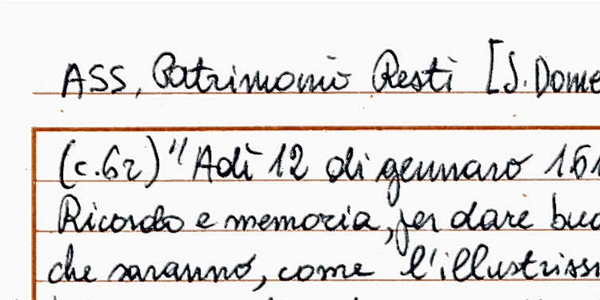 ASS, Patrimonio Resti [S. Dome
(c.62) "Adì 12 di gennaro 161
Ricordo e memoria, per dare buo
che saranno, come l'illustriss